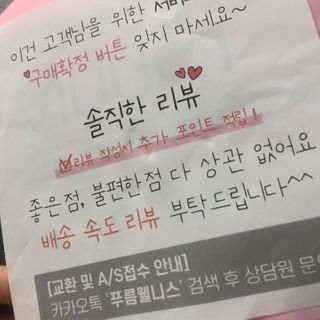 이건 고객님을 위한 서비
구매확정 버튼 잊지 마세요~
솔직한 리뷰
리뷰 작성시 추가 포인트 적립!
좋은점, 불편한점 다 상관 없어요
배송 속도 리뷰 부탁드립니다~^
[교환 및 A/S접수 안내]
카카오톡 '푸름웰니스' 검색 후 상담원 문의